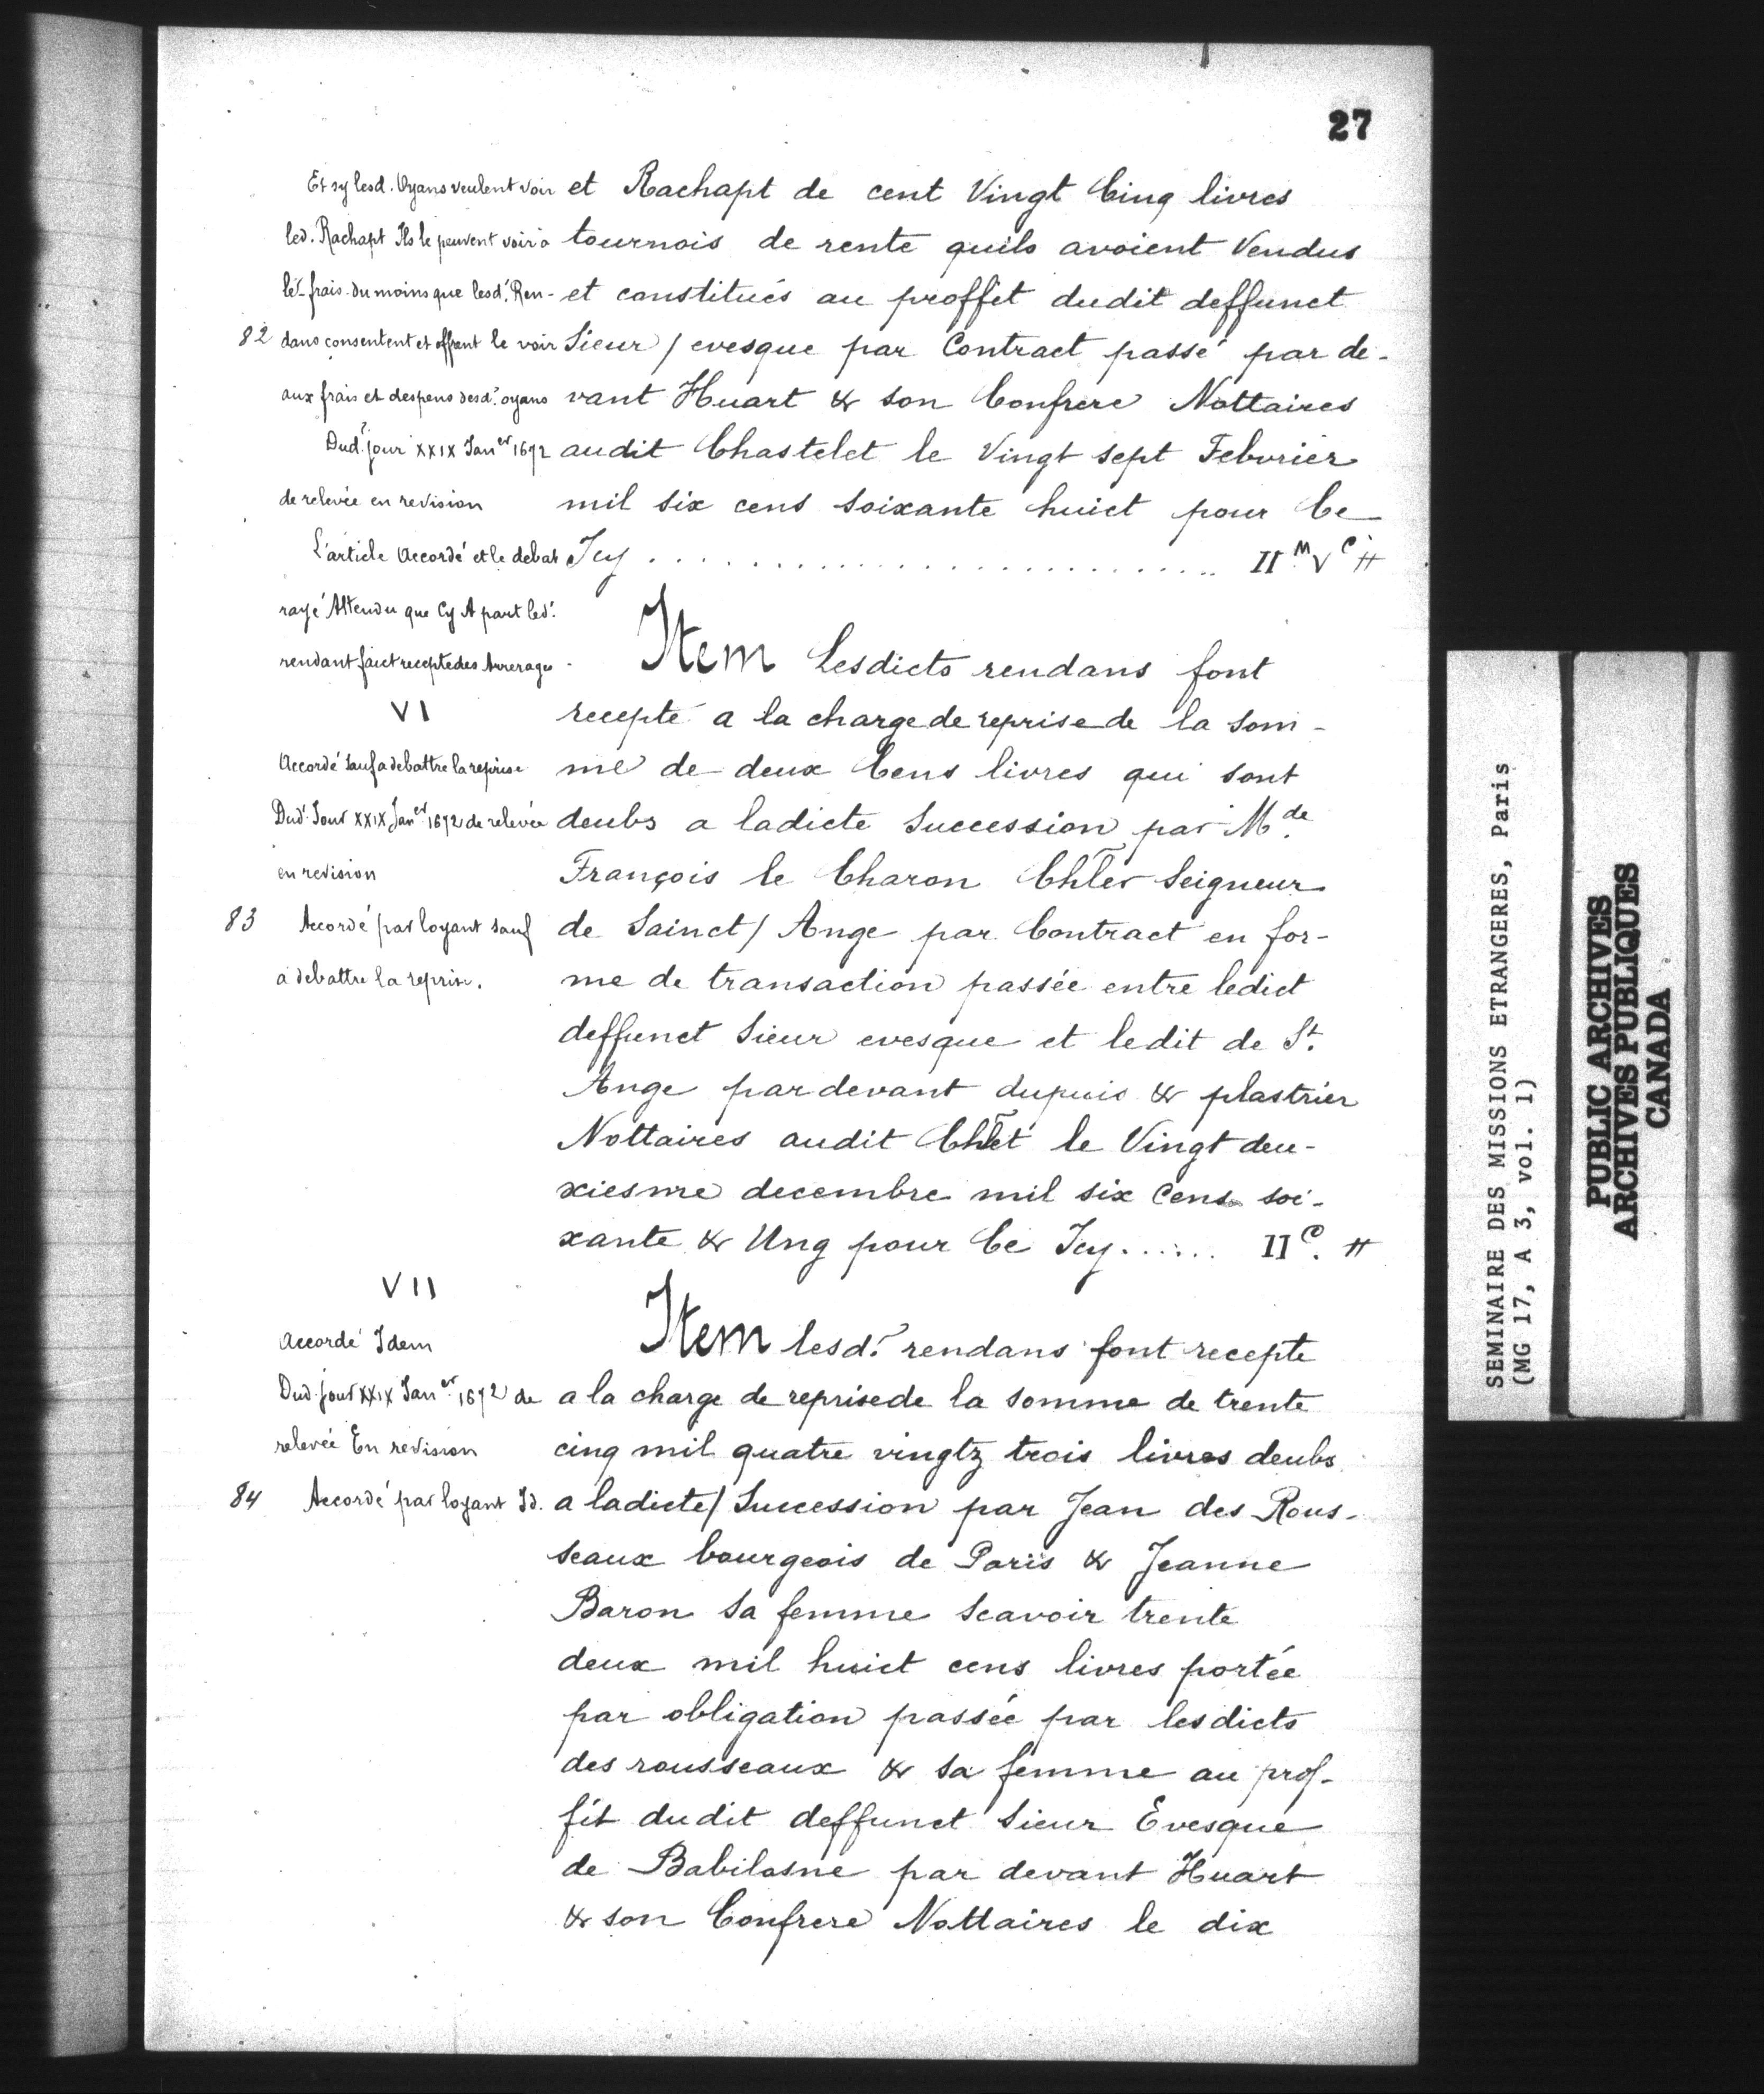 27
et Rachapt de cent Vingt Cinq livres
tournois de rente quils avoient Vendus
et constitués au proffit dudit deffunct
Sieur / evesque par Contract passé par de-
vant Huart & son Confrere Nottaires
audit Chastelet le Vingt sept Febvrier
mil six cens soixante huict pour Ce
Icy . . . . . . . . . . . . . . . . . . . . . . . . II M V C ₶
Item Lesdicts rendans font
recepte a la charge de reprise de la som-
me de deux Cens livres qui sont
deubs a ladicte Succession par M de
François le Charon Chler Seigneur
de Sainct / Ange par Contract en for-
me de transaction passée entre ledict
deffunct Sieur evesque et ledit de St.
Ange pardevant dupuis & plastrier
Nottaires audit Chlet le Vingt deu-
xiesme decembre mil six Cens soi-
xante & Ung pour Ce Icy ...... II C. ₶
Item lesd. rendans font recepte
a la charge de reprise de la somme de trente
cinq mil quatre vingtz trois livres deubs
a ladicte / Succession par Jean des Rous-
seaux bourgeois de Paris & Jeanne
Baron sa femme scavoir trente
deux mil huict cens livres portée
par obligation passée par lesdicts
des rousseaux & sa femme au prof-
fit dudit deffunct Sieur Evesque
de Babilosne par devant Huart
& son Confrere Nottaires le dix
Et sy lesd. Oyans veulent voir
led. Rachapt Ils le peuvent voir a
frais du moins que lesd. Ren-
82 dans consentent et offrent le voir
aux frais et despens desd. oyans
Dud. jour XXIX Janer 1672
de relevée en revision
L'article Accordé et le debat
rayé Attendu que Cy A part led.
rendant faict recepte des Arrerages
VI
Accordé Sauf a debattre la reprise
Dud. Jour XXIX Janer 1672 de relevée
en revision
83 Accordé par loyant sauf
a debattre la reprise.
VII
Accordé Idem
Dud. Jour XXIX Janer 1672 de
relevée En revision
84 Accordé par loyant Id.
SEMINAIRE DES MISSIONS ETRANGERES, Paris
(MG 17, A 3, vol. 1)
PUBLIC ARCHIVES
ARCHIVES PUBLIQUES
CANADA